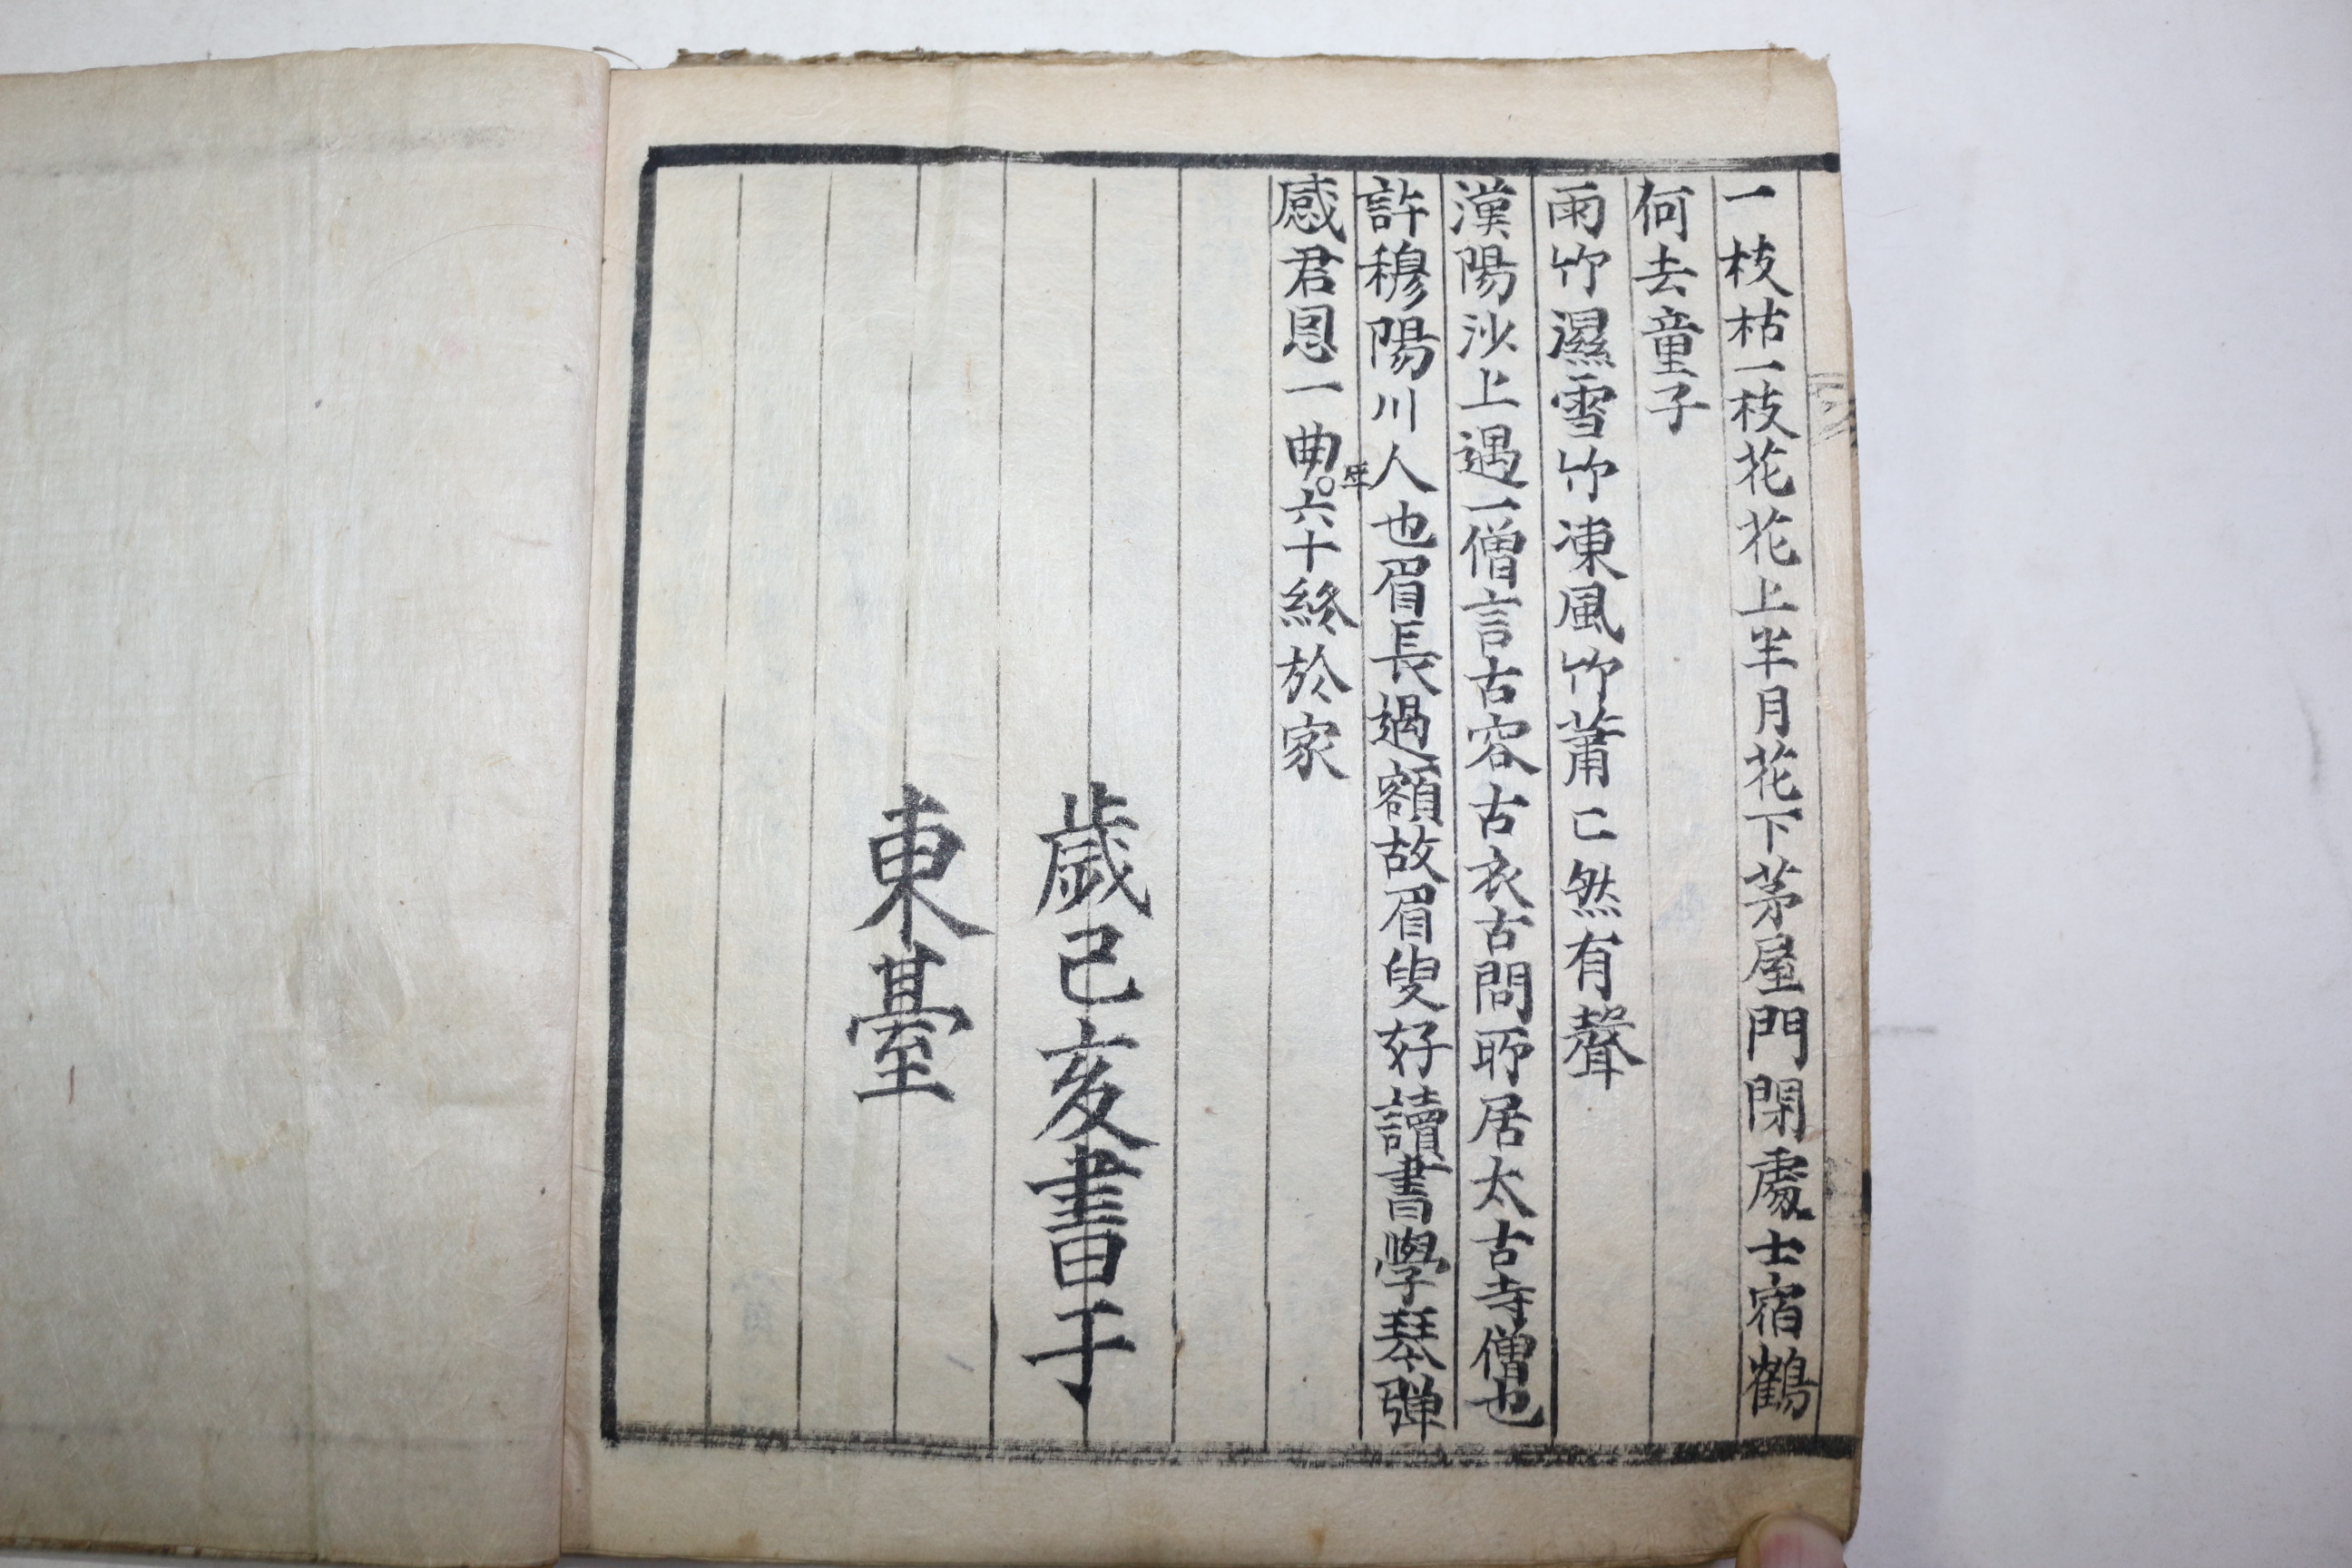 一枝枯一枝花花上半月花下茅屋門閑處士宿鶴
何去童子
雨竹濕雪竹凍風竹蕭已然有聲
漢陽沙上遇一僧言古容古衣古問所居太古寺僧也
許穆陽川人也眉長過額故眉叟好讀書學琴弹
感君恩一曲年六十終於家
歲己亥書于
東臺